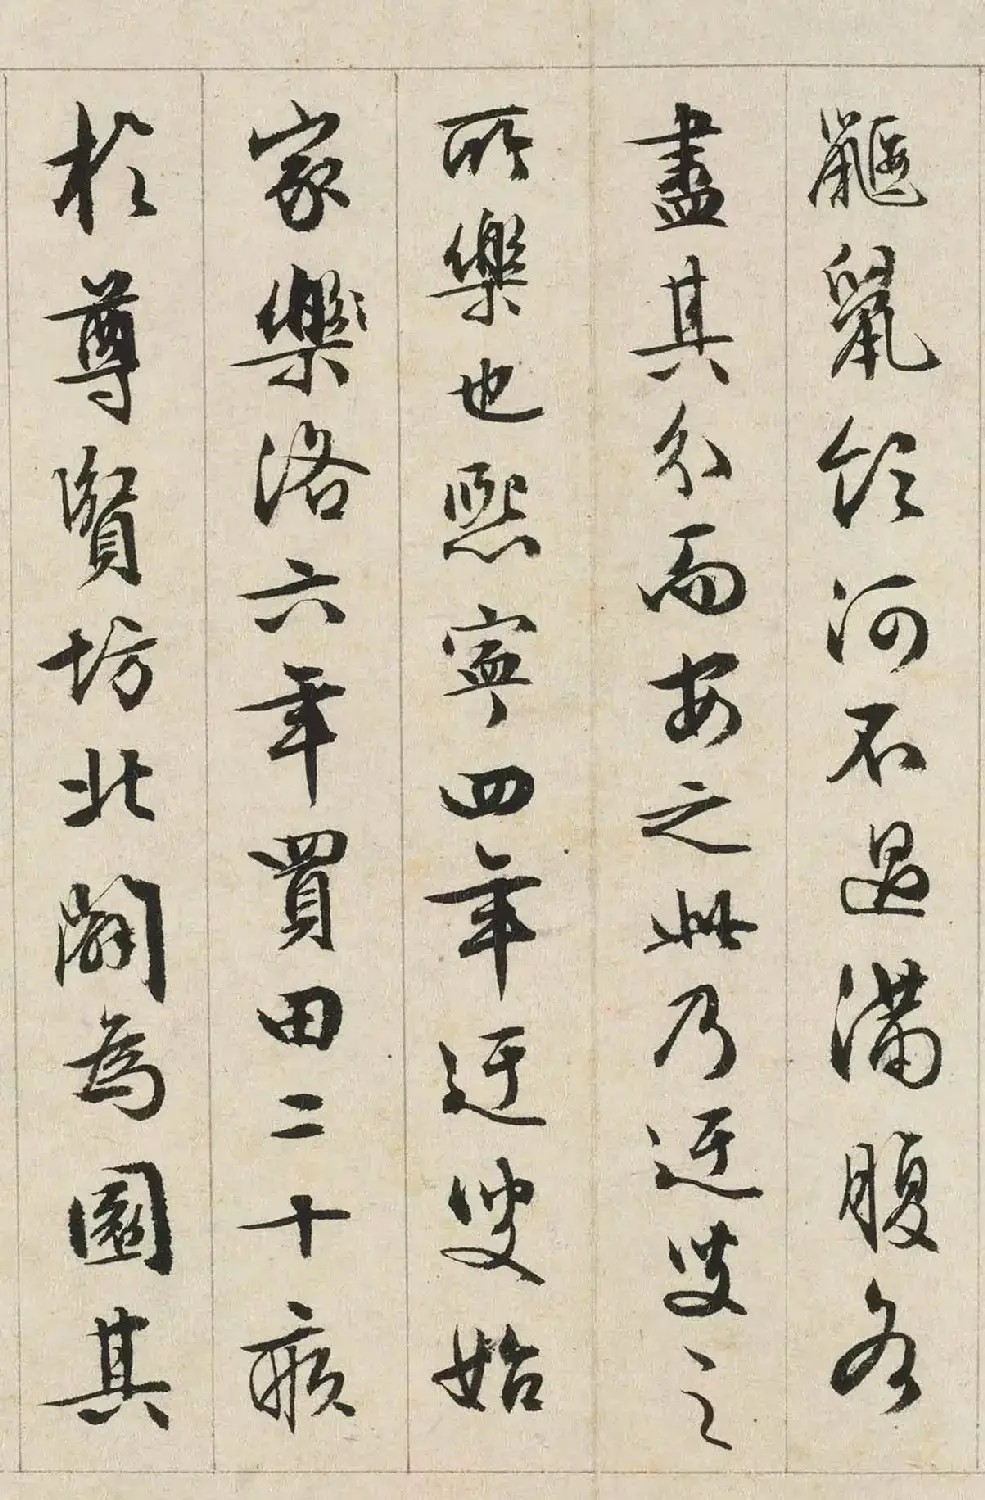 鼴鼠飲河不過滿腹各
盡其分而安之此乃迂叟之
所樂也熙寧四年迂叟始
家樂洛六年買田二十畝
於尊賢坊北闢為園其